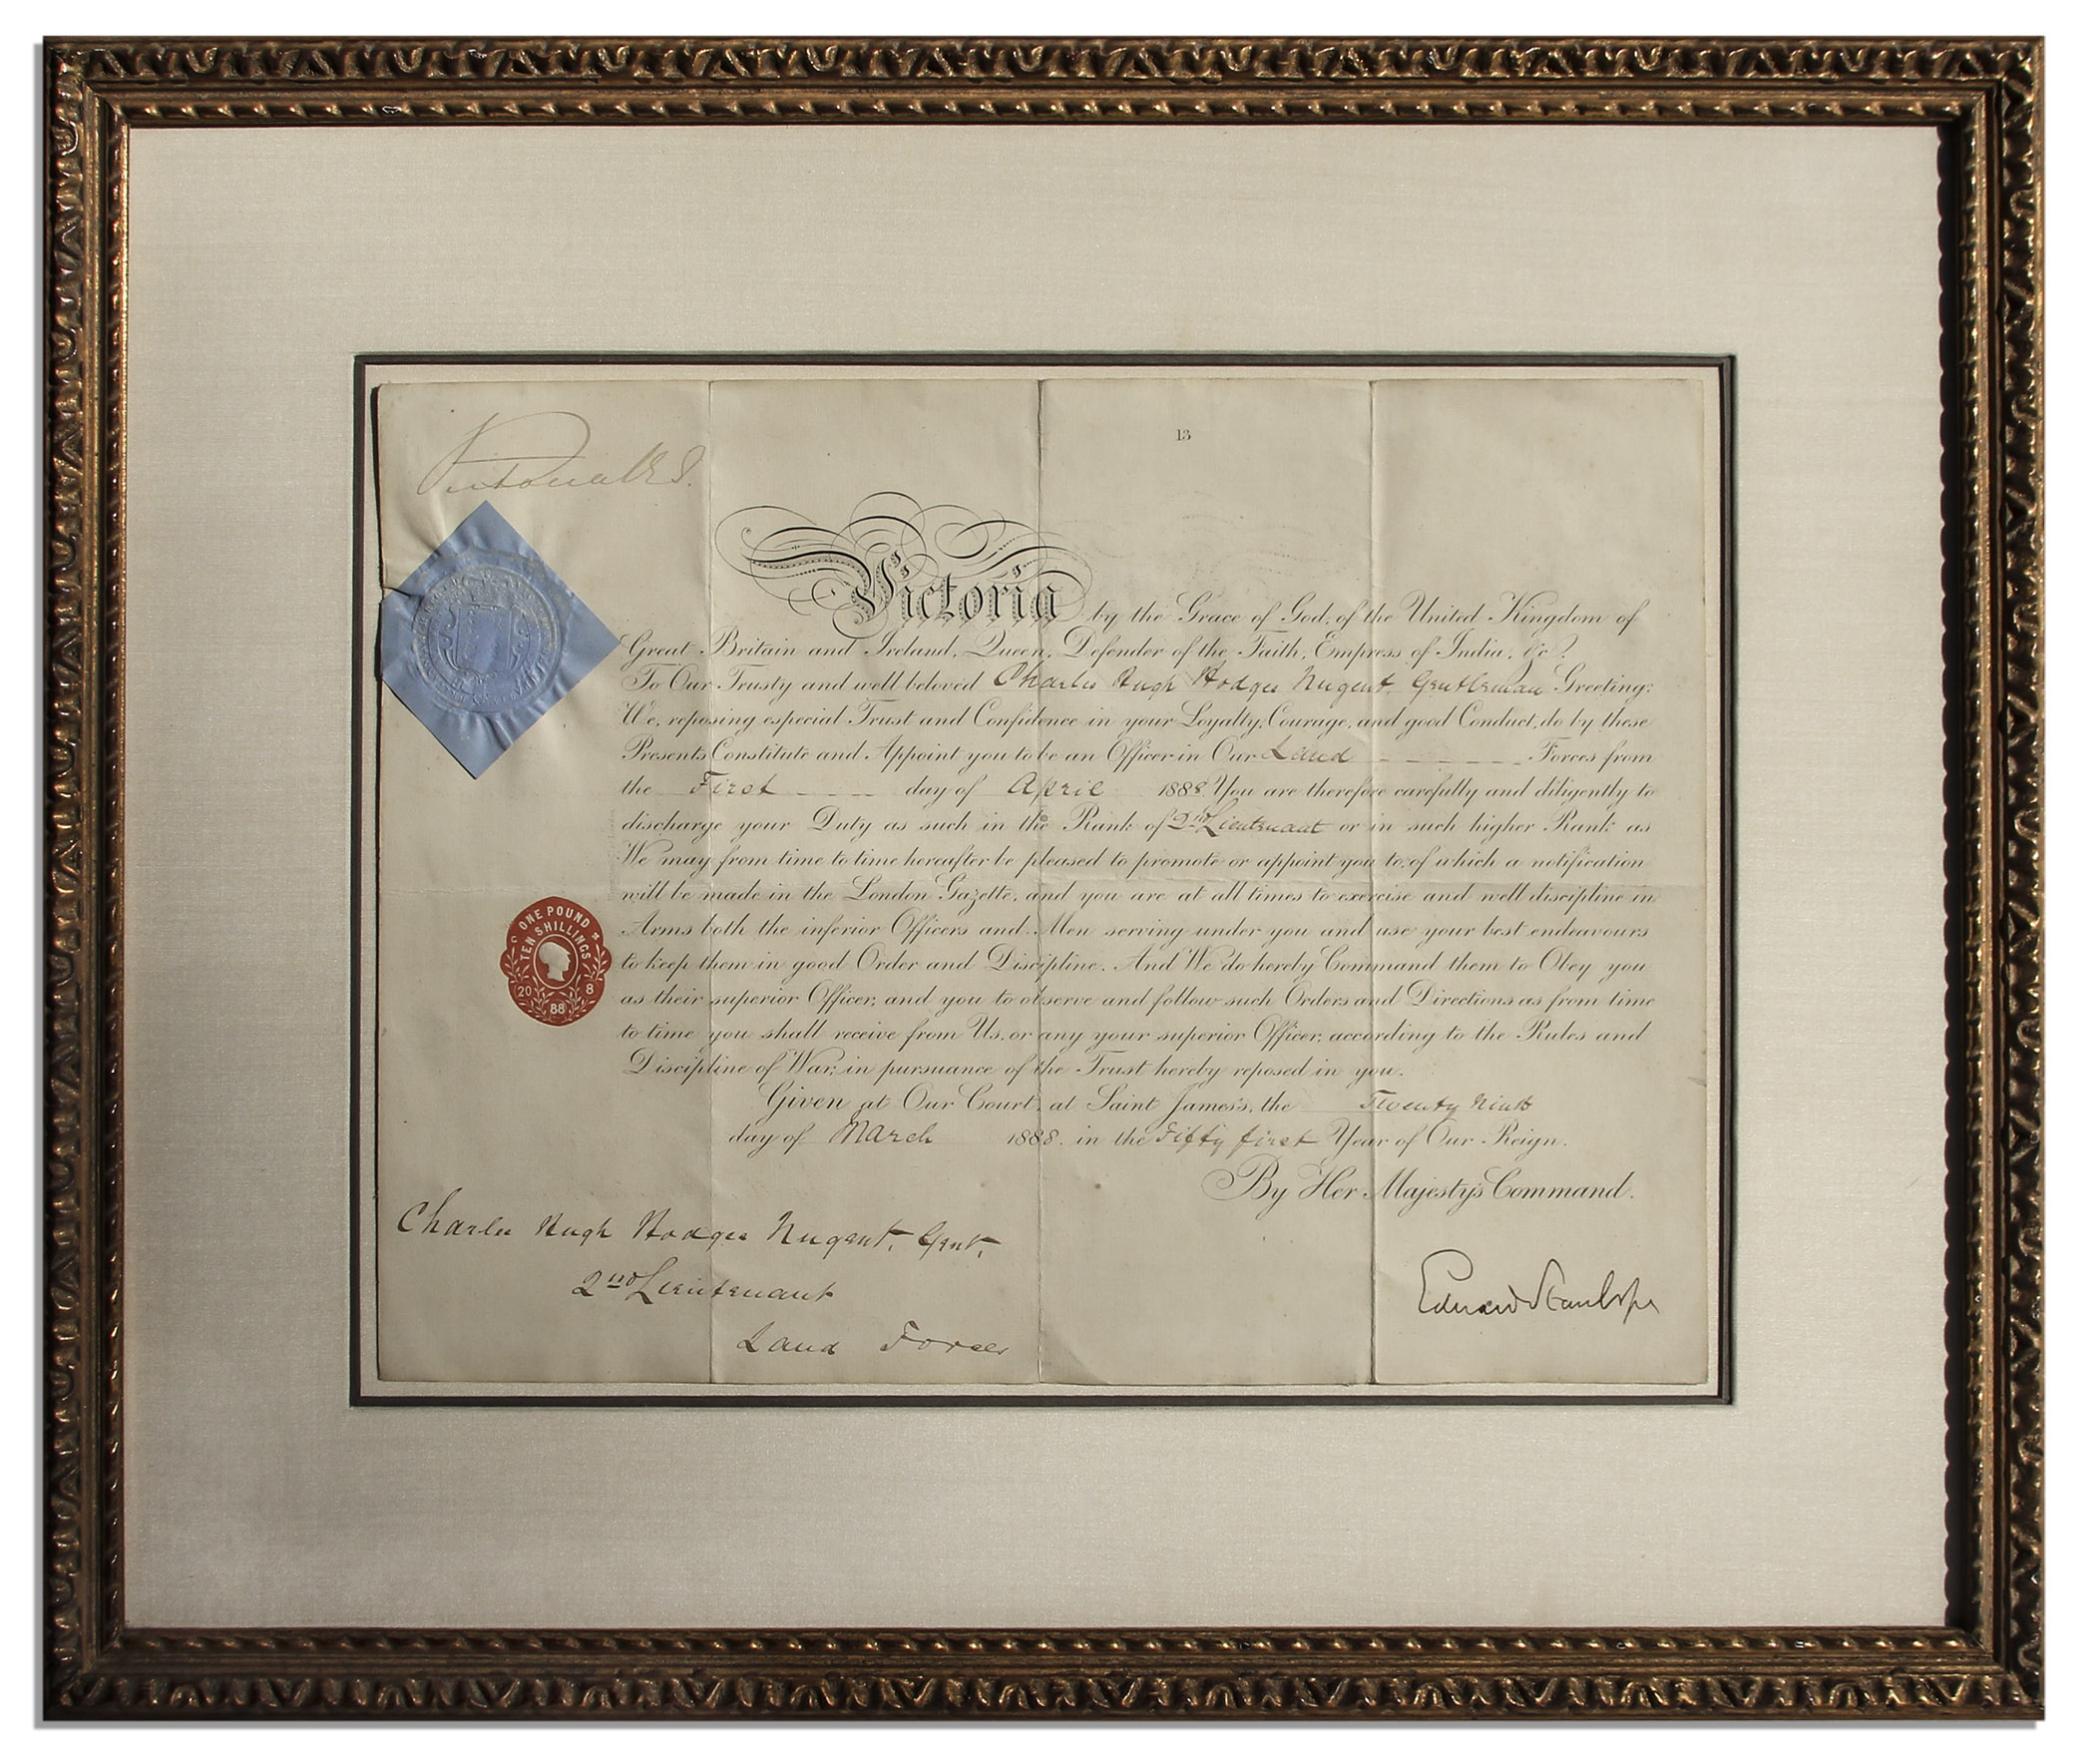 Victoria R I.
13
Victoria by the Grace of God, of the United Kingdom of
Great Britain and Ireland, Queen, Defender of the Faith, Empress of India, &c.
To Our Trusty and well beloved Charles Hugh Hodges Nugent, Gentleman Greeting:
We, reposing especial Trust and Confidence in your Loyalty, Courage, and good Conduct, do by these
Presents Constitute and Appoint you to be an Officer in Our Land Forces from
the First day of April 1888. You are therefore carefully and diligently to
discharge your Duty as such in the Rank of 2nd Lieutenant or in such higher Rank as
We may from time to time hereafter be pleased to promote or appoint you to, of which a notification
will be made in the London Gazette, and you are at all times to exercise and well discipline in
Arms both the inferior Officers and Men serving under you and use your best endeavours
to keep them in good Order and Discipline. And We do hereby Command them to Obey you
as their superior Officer, and you to observe and follow such Orders and Directions as from time
to time you shall receive from Us, or any your superior Officer, according to the Rules and
Discipline of War, in pursuance of the Trust hereby reposed in you.
Given at Our Court, at Saint James's, the Twenty Ninth
day of March 1888. in the Fifty first Year of Our Reign.
By Her Majesty's Command.
ONE POUND
TEN SHILLINGS
20 8
88
Charles Hugh Hodges Nugent, Gent,
2nd Lieutenant
Land Forces
Edward Stanhope